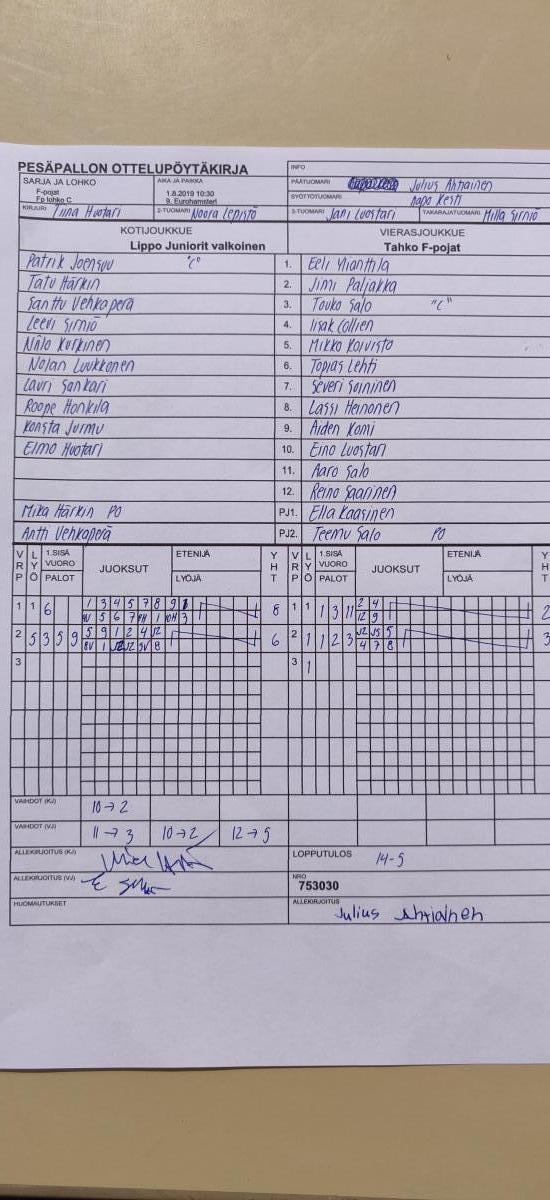 PESÄPALLON OTTELUPÖYTÄKIRJA
INFO
SARJA JA LOHKO
F-pojat
Fp lohko C
AIKA JA PAIKKA
1.8.2019 10:30
9. Eurohamsteri
PÄÄTUOMARI Julius Ahtiainen
SYÖTTÖTUOMARI Aapo Kesti
KIRJURI Tiina Huotari
2-TUOMARI Noora Lepistö
3-TUOMARI Jani Luostari
TAKARAJATUOMARI Milla Sirniö
KOTIJOUKKUE
Lippo Juniorit valkoinen
VIERASJOUKKUE
Tahko F-pojat
Patrik Joensuu "C" 1. Eeli Ylianttila
Tatu Härkin 2. Jimi Paljakka
Santtu Vehkaperä 3. Touko Salo "C"
Leevi Sirniö 4. Iisak Collien
Niilo Kurkinen 5. Mikko Koivisto
Nolan Luukkonen 6. Topias Lehti
Lauri Sankari 7. Severi Soininen
Roope Honkila 8. Lassi Heinonen
Konsta Jurmu 9. Aiden Komi
Elmo Huotari 10. Eino Luostari
11. Aaro Salo
12. Reino Saarinen
Mika Härkin PO PJ1. Ella Kaasinen
Antti Vehkaperä PJ2. Teemu Salo PO
VRP LYÖ 1.SISÄ VUORO PALOT JUOKSUT ETENIJÄ LYÖJÄ YHT VRP LYÖ 1.SISÄ VUORO PALOT JUOKSUT ETENIJÄ LYÖJÄ YHT
1 1 6 1 3 4 5 7 8 9 8 1 1 1 3 11 2 4 2
12 9
2 5 3 5 9 5 9 1 2 4 6 2 1 1 2 3 5 3
4 7 8
3 3 1
VAIHDOT (KJ) 10→2
VAIHDOT (VJ) 11→3 10→2 12→5
ALLEKIRJOITUS (KJ)
LOPPUTULOS 14-5
ALLEKIRJOITUS (VJ)
NRO
753030
HUOMAUTUKSET
ALLEKIRJOITUS
Julius Ahtiainen